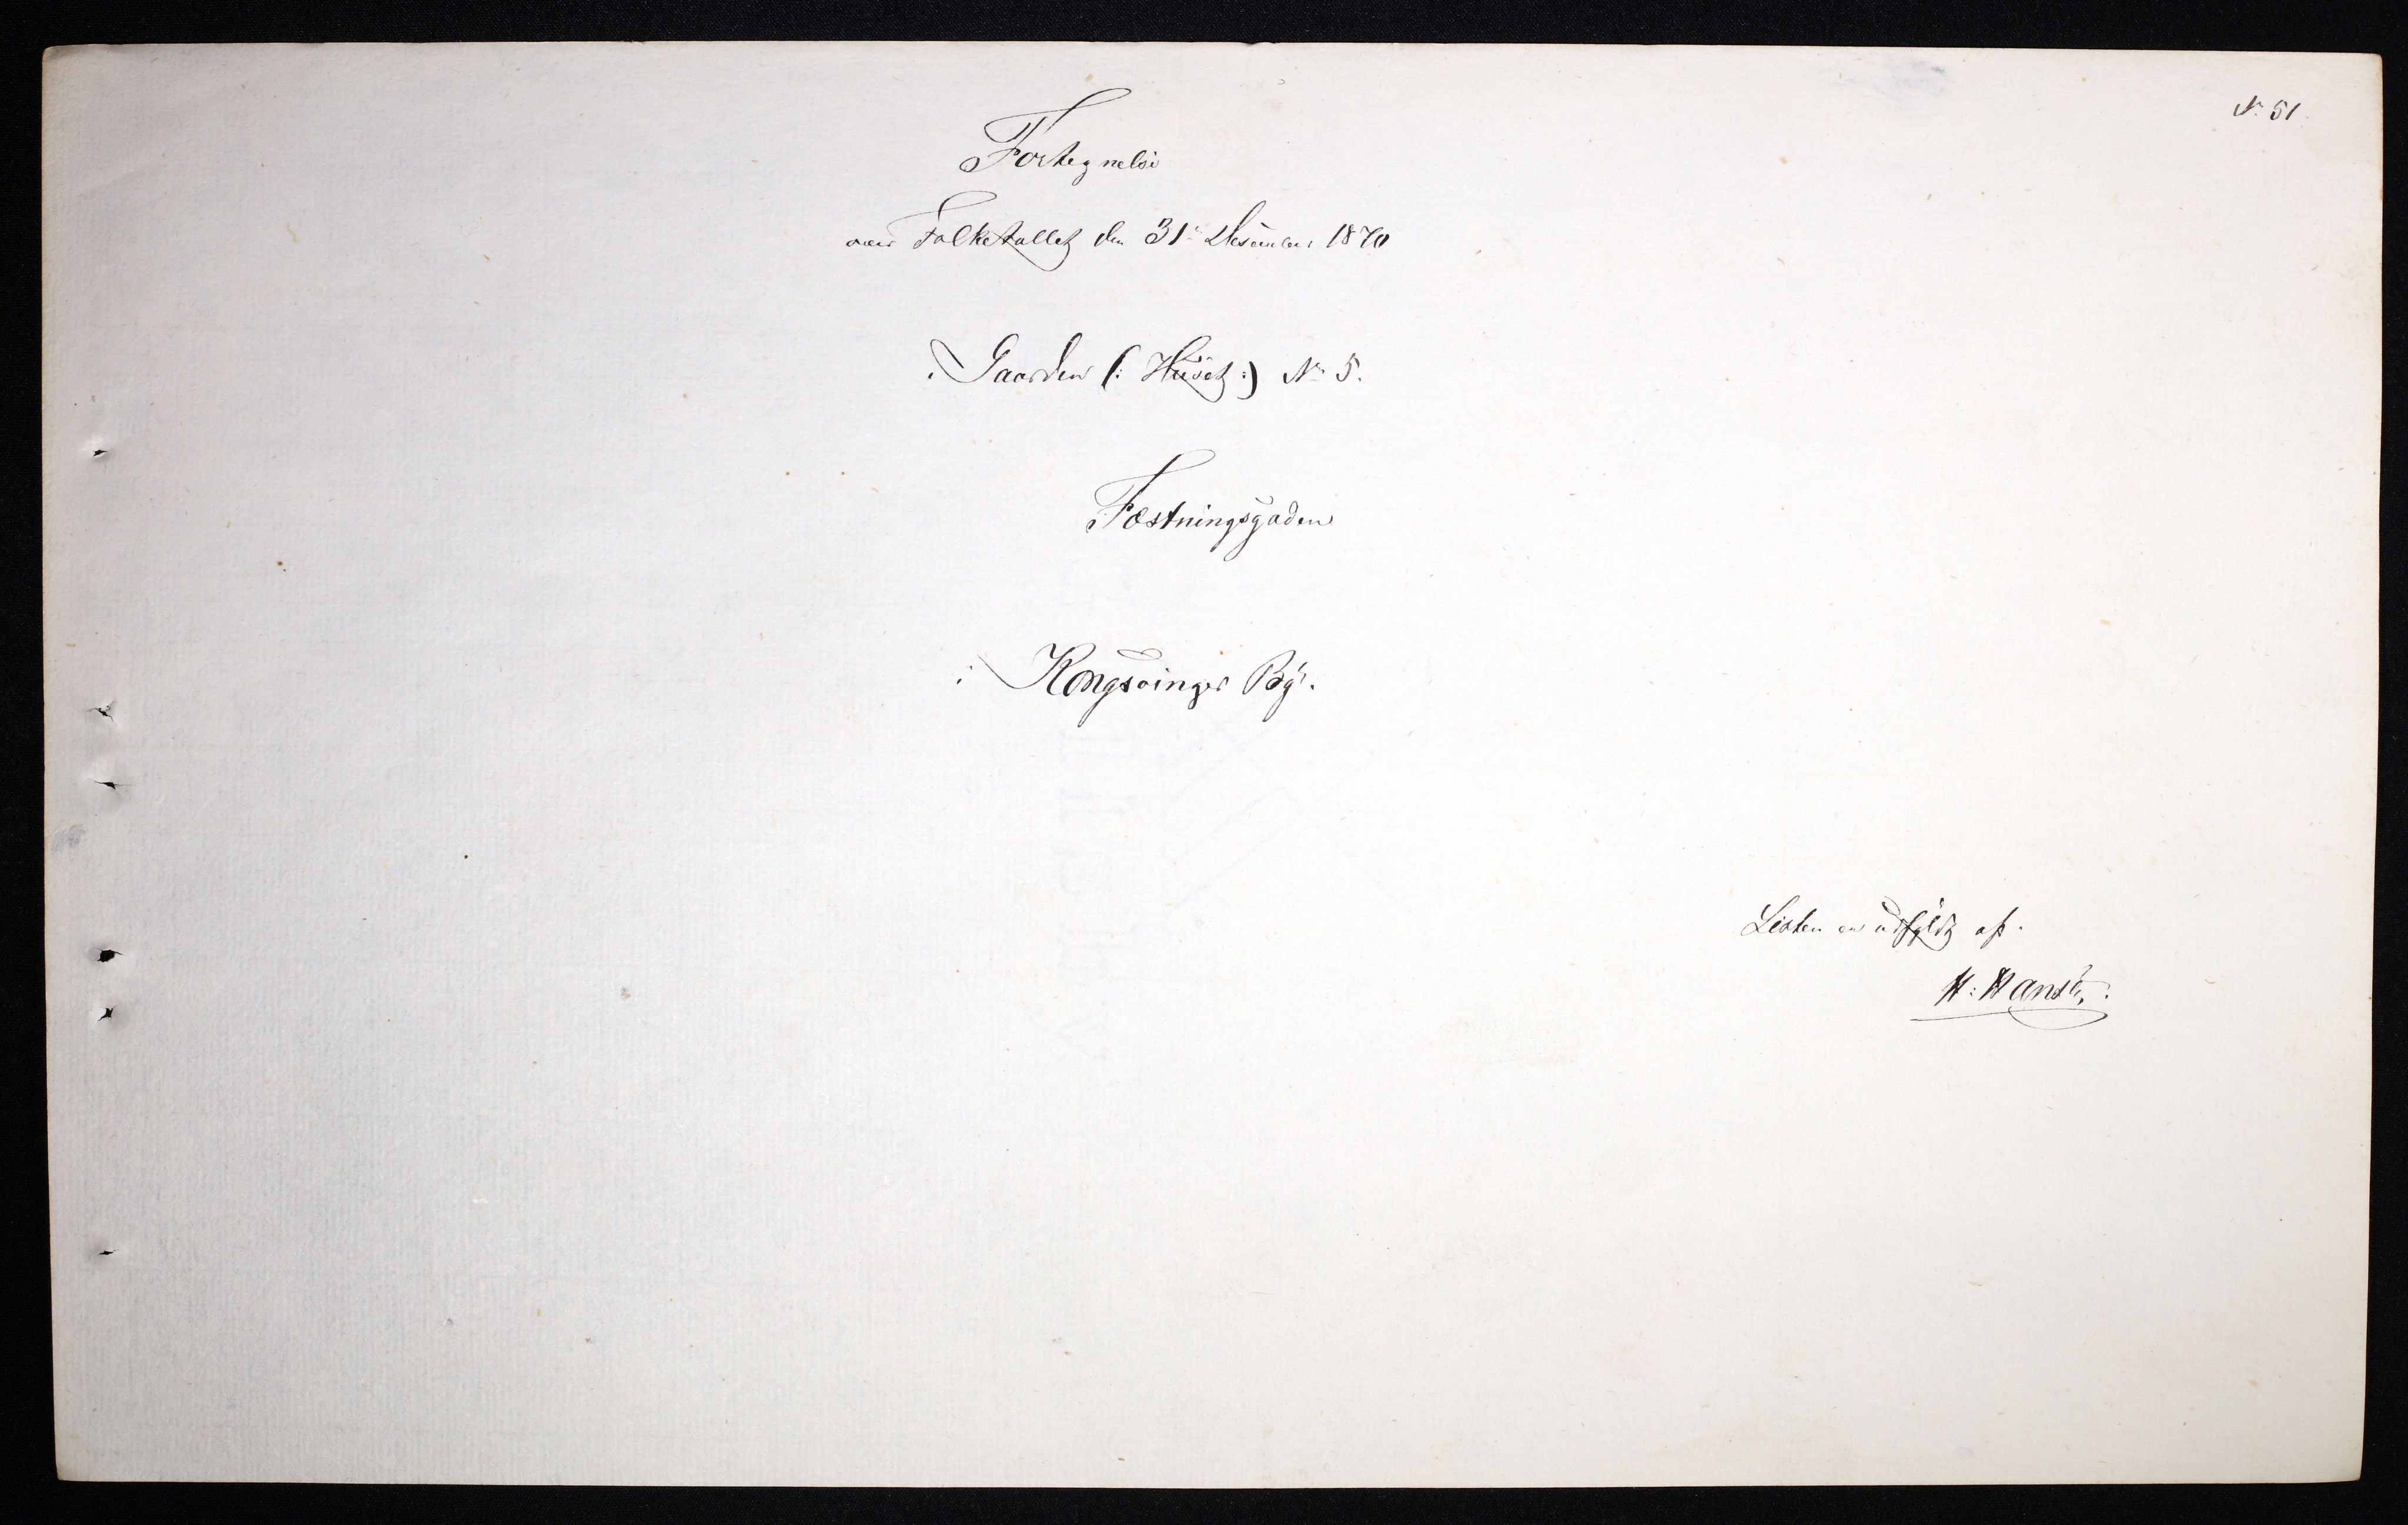 No 51.
Fortegnelse
over Folketallet den 31te December 1870
i Gaarden (: Huset :) No 5.
Fæstningsgaden
i Kongsvinger By.
Listen er udfyldt af.
H: Hansen.